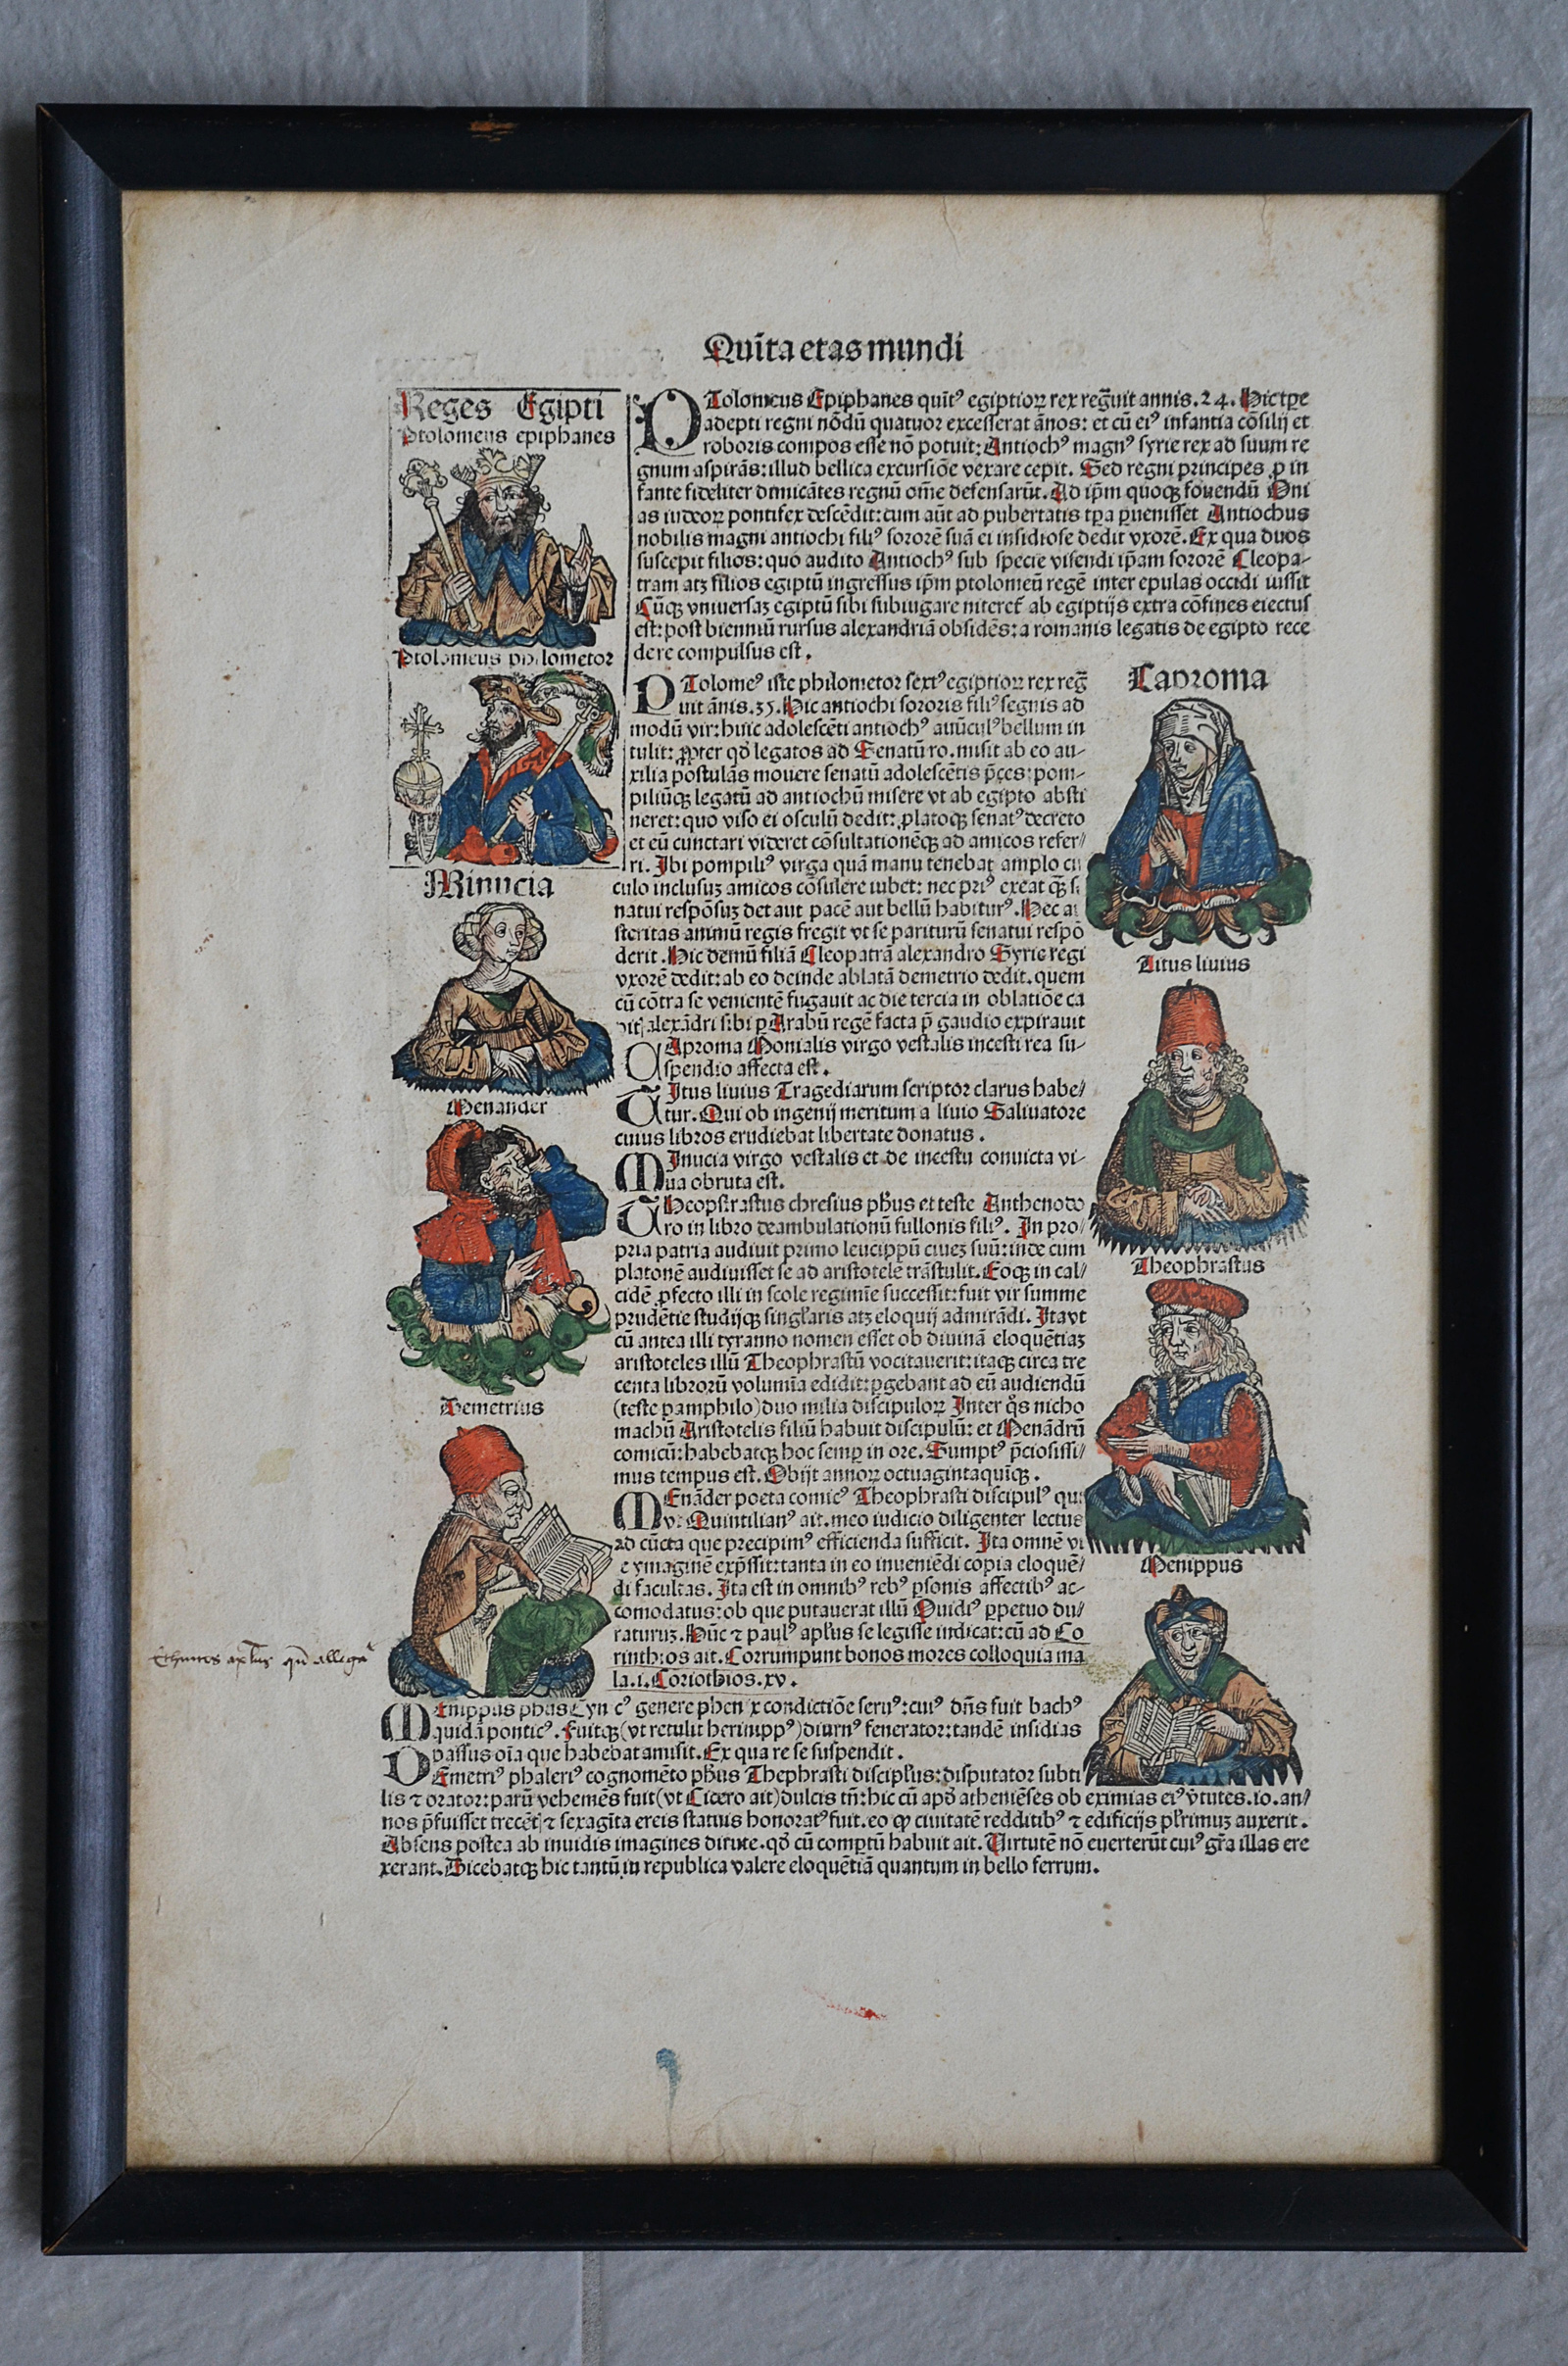 Quīta etas mundi
Reges Egipti
Ptolomeus epiphanes
Ptolomeus philometor
Minucia
Menander
Demetrius
PTolomeus Epiphanes quītꝰ egiptioꝝ rex reg̃uit annis.24. Hic tꝑe
adepti regni nōdū quatuor excesserat ānos: et cū eiꝰ infantia cōsilij et
roboris compos esse nō potuit: Antiochꝰ magnꝰ syrie rex ad suum re
gnum aspirās: illud bellica excursiōe vexare cepit. Sed regni principes ꝓ in
fante fideliter dimicātes regnū om̄e defensarūt. Ad ip̄m quoqꝫ fouendū Oni
as iudeoꝝ pontifex descēdit: cum aūt ad pubertatis tꝑa ꝑuenisset Antiochus
nobilis magni antiochi filiꝰ sororē suā ei insidiose dedit vxorē. Ex qua duos
suscepit filios: quo audito Antiochꝰ sub specie visendi ip̄am sororē Cleopa-
tram atꝫ filios egiptū ingressus ip̄m ptolomeū regē inter epulas occidi iussit
Cūqꝫ vniuersaꝫ egiptū sibi subiugare niteret̄ ab egiptijs extra cōfines eiectus
est: post bienniū rursus alexandriā obsidēs: a romanis legatis de egipto rece
dere compulsus est.
PTolomeꝰ iste philometor sextꝰ egiptioꝝ rex reg̃
uit ānis.35. Hic antiochi sororis filiꝰ segnis ad
modū vir: huic adolescēti antiochꝰ auūculꝰ bellum in
tulit: ꝓpter qd̄ legatos ad Senatū ro. misit ab eo au-
xilia postulās mouere senatū adolescētis p̄ces: pom-
piliūqꝫ legatū ad antiochū misere vt ab egipto absti
neret: quo viso ei osculū dedit: ꝓlatoqꝫ senatꝰ decreto
et eū cunctari videret cōsultationēqꝫ ad amicos refer-
ri. Ibi pompiliꝰ virga quā manu tenebat amplo cir
culo inclusuꝫ amicos cōsulere iubet: nec priꝰ exeat qꝫ̄
natui respōsuꝫ det aut pacē aut bellū habiturꝰ. Hec
steritas animū regis fregit vt se pariturū senatui respō
derit. Hic demū filiā Cleopatrā alexandro Syrie regi
vxorē dedit: ab eo deinde ablatā demetrio dedit. quem
cū cōtra se venientē fugauit ac die tercia in oblatiōe ca
pit alexādri sibi ꝑ Arabū regē facta p̄ gaudio expirauit
CAproma Monialis virgo vestalis incesti rea su-
spendio affecta est.
TItus liuius Tragediarum scriptor clarus habe/
tur. Qui ob ingenij meritum a liuio Saliuatore
cuius libros erudiebat libertate donatus.
MInucia virgo vestalis et de incestu conuicta vi-
ua obruta est.
THeophrastus chresius ph̄us et teste Anthenodo
ro in libro deambulationū fullonis filiꝰ. In pro/
pria patria audiuit primo leucippū ciueꝫ suū: inde cum
platonē audiuisset se ad aristotelē trāstulit. Eoqꝫ in cal/
cidē ꝓfecto illi in scole regimīe successit: fuit vir summe
prudētie studijqꝫ singl̄aris atꝫ eloquij admirādi. Ita vt
cū antea illi tyranno nomen esset ob diuinā eloquētiaꝫ
aristoteles illū Theophrastū vocitauerit: itaqꝫ circa tre
centa librorū volumīa edidit: ꝑgebant ad eū audiendū
(teste pamphilo) duo milia discipuloꝝ Inter q̊s nicho
machū Aristotelis filiū habuit discipulū: et Menādrū
comicū: habebatqꝫ hoc semꝑ in ore. Sumptꝰ p̄ciosissi/
mus tempus est. Obijt annoꝝ octuagintaquīqꝫ.
MEnāder poeta comicꝰ Theophrasti discipulꝰ qui
vt Quintilianꝰ ait. meo iudicio diligenter lectus
ad cūcta que precipimꝰ efficienda sufficit. Ita omnē vi
e ymaginē exp̄ssit: tanta in eo inueniēdi copia eloquē/
di facultas. Ita est in omnibꝰ rebꝰ ꝑsonis affectibꝰ ac-
comodatus: ob que putauerat illū Ouidiꝰ ꝑpetuo du/
raturuꝫ. Hūc ⁊ paulꝰ apl̄us se legisse indicat: cū ad Co
rinthios ait. Corrumpunt bonos mores colloquia ma
la. i. Coriothios. xv.
MEnippus ph̄us Cynicꝰ genere phen x condictiōe seruꝰ: cuiꝰ dn̄s fuit bachꝰ
quidā ponticꝰ. Fuitqꝫ (vt retulit hermippꝰ) diurnꝰ fenerator: tandē insidias
passus oīa que habebat amisit. Ex qua re se suspendit.
DEmetriꝰ phaleriꝰ cognomēto ph̄us Thephrasti discipl̄us: disputator subti
lis ⁊ orator: parū vehemēs fuit (vt Cicero ait) dulcis tn̄: hic cū apd̄ atheniēses ob eximias eiꝰ v̄tutes. io. an/
nos p̄fuisset trecēt ⁊ sexagīta ereis statuis honoratꝰ fuit. eo qꝙ ciuitatē redditibꝰ ⁊ edificijs pl̄rimuꝫ auxerit.
Absens postea ab inuidis imagines dirute. qd̄ cū comꝑtū habuit ait. Virtutē nō euerterūt cuiꝰ gr̄a illas ere
xerant. Dicebatqꝫ hic tantū in republica valere eloquētiā quantum in bello ferrum.
Caproma
Titus liuius
Theophrastus
Menippus